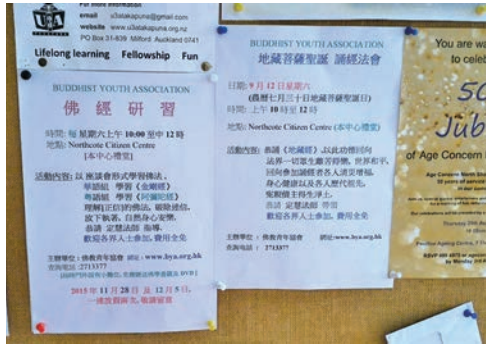 For more information
email u3atakapuna@gmail.com
website www.u3atakapuna.org.nz
PO Box 31-839 Milford Auckland 0741
Lifelong learning Fellowship Fun
BUDDHIST YOUTH ASSOCIATION
佛 經 研 習
時間: 每 星期六上午 10:00 至中 12時
地點: Northcote Citizen Centre
[本中心禮堂]
活動內容: 以 座談會形式學習佛法,
華語組 學習《金剛經》
粵語組 學習《阿彌陀經》
理解[正信]的佛法, 破除迷信,
放下執著, 自然身心安樂,
恭請 定慧法師 指導,
歡迎各界人士參加, 費用全免
主辦單位: 佛教青年協會 網址: www.bya.org.hk
查詢電話: 2713377
2015 年 11 月 28 日 及 12 月 5 日,
BUDDHIST YOUTH ASSOCIATION
地藏菩薩聖誕 誦經法會
日期: 9 月 12 日星期六
(農曆七月三十日地藏菩薩聖誕日)
時間: 上午 10時至 12時
地點: Northcote Citizen Centre (本中心禮堂)
活動內容: 恭誦《地藏經》, 以此功德回向
法界一切眾生離苦得樂, 世界和平,
回向參加誦經者各人消災增福,
身心健康以及各人歷代祖先,
冤親債主得生淨土,
恭請 定慧法師 帶領
歡迎各界人士參加, 費用全免
主辦單位: 佛教青年協會 網址: www.bya.org.hk
查詢電話: 2713377
You are wa
to celeb
50
Jub
of Age Concern